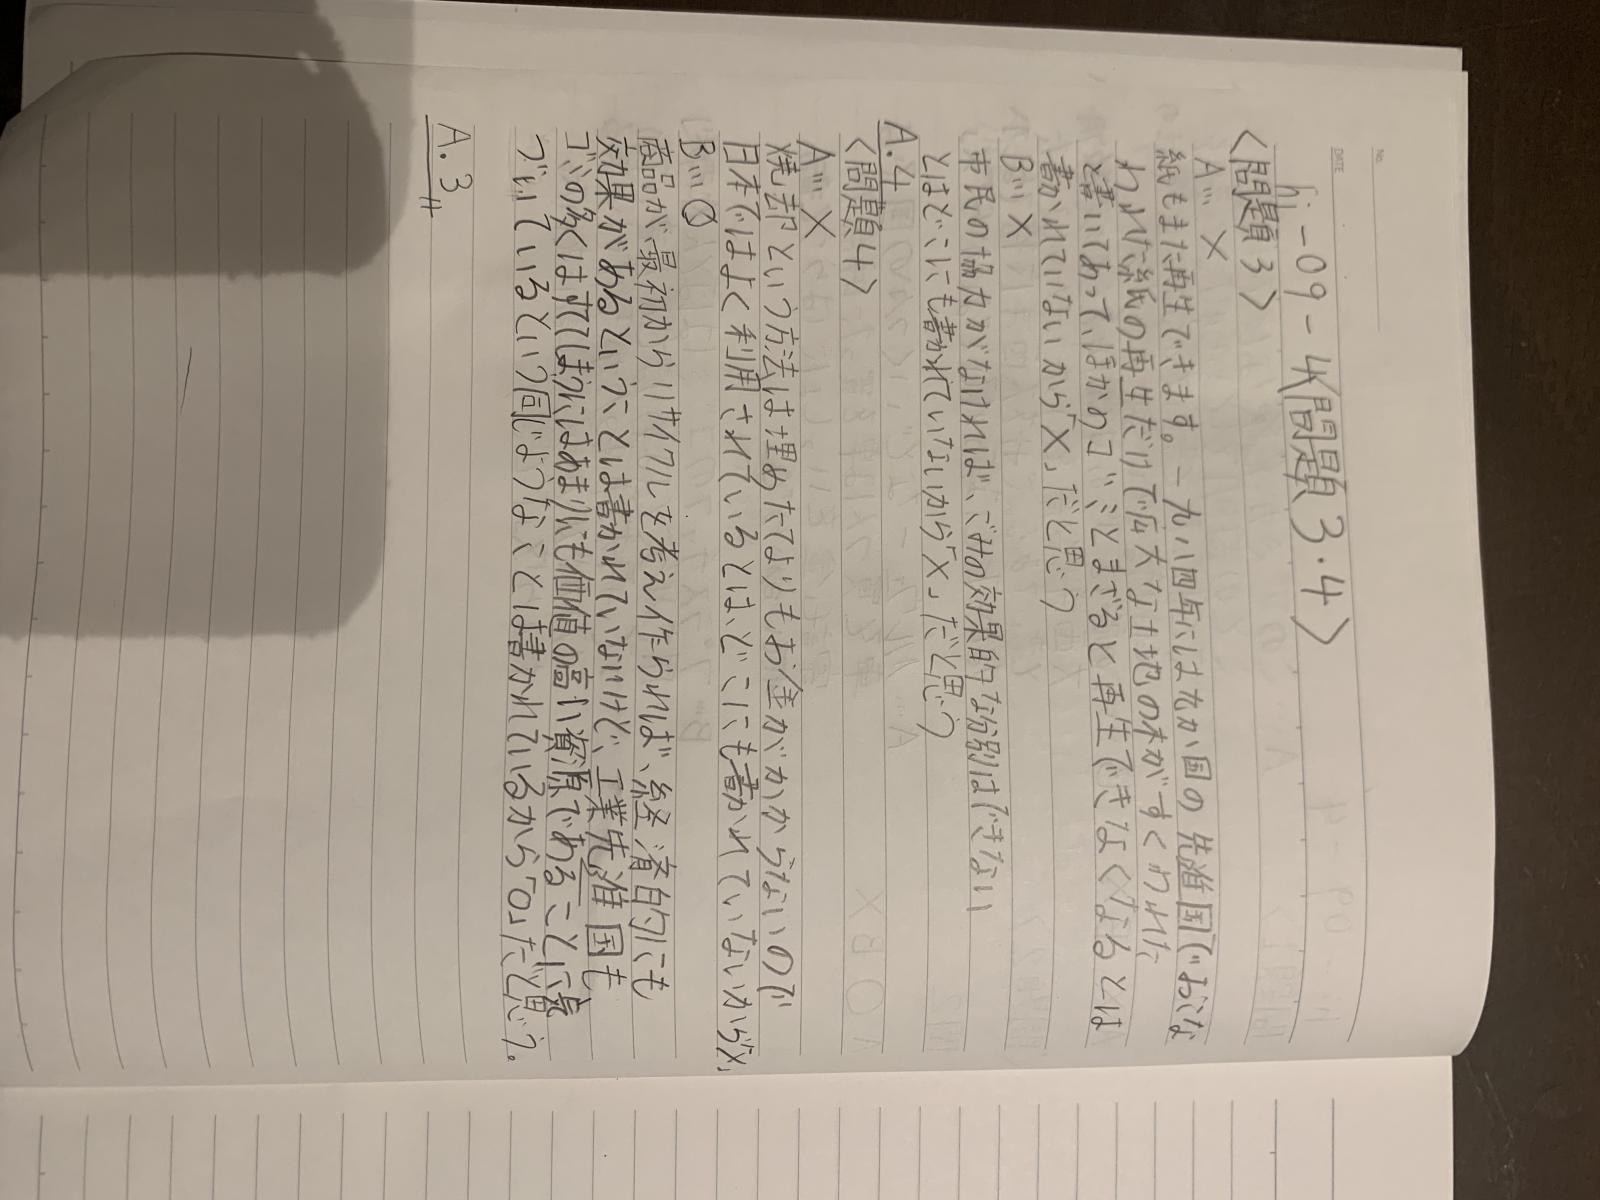 No.
DATE
hj-09-4〈問題3・4〉
〈問題3〉
A… ×
紙もまた再生できます。一九八四年には九か国の先進国でおこな
われた紙の再生だけで広大な土地の木がすくわれた
と書いてあって、ほかのゴミとまざると再生できなくなるとは
書かれていないから「×」だと思う
B… ×
市民の協力がなければ、ごみの効果的な分別はできない
とはどこにも書かれていないから「×」だと思う
A.4
〈問題4〉
A… ×
焼却という方法は埋めたてよりもお金がかからないので
日本ではよく利用されているとは、どこにも書かれていないから「×」
B… ○
商品が最初からリサイクルを考え作られれば、経済的にも
効果があるということは書かれていないけど、工業先進国も
ゴミの多くはすてしまうにはあまりにも価値の高い資源であることに気
づいているという同じようなことは書かれているから「○」だと思う。
A.3